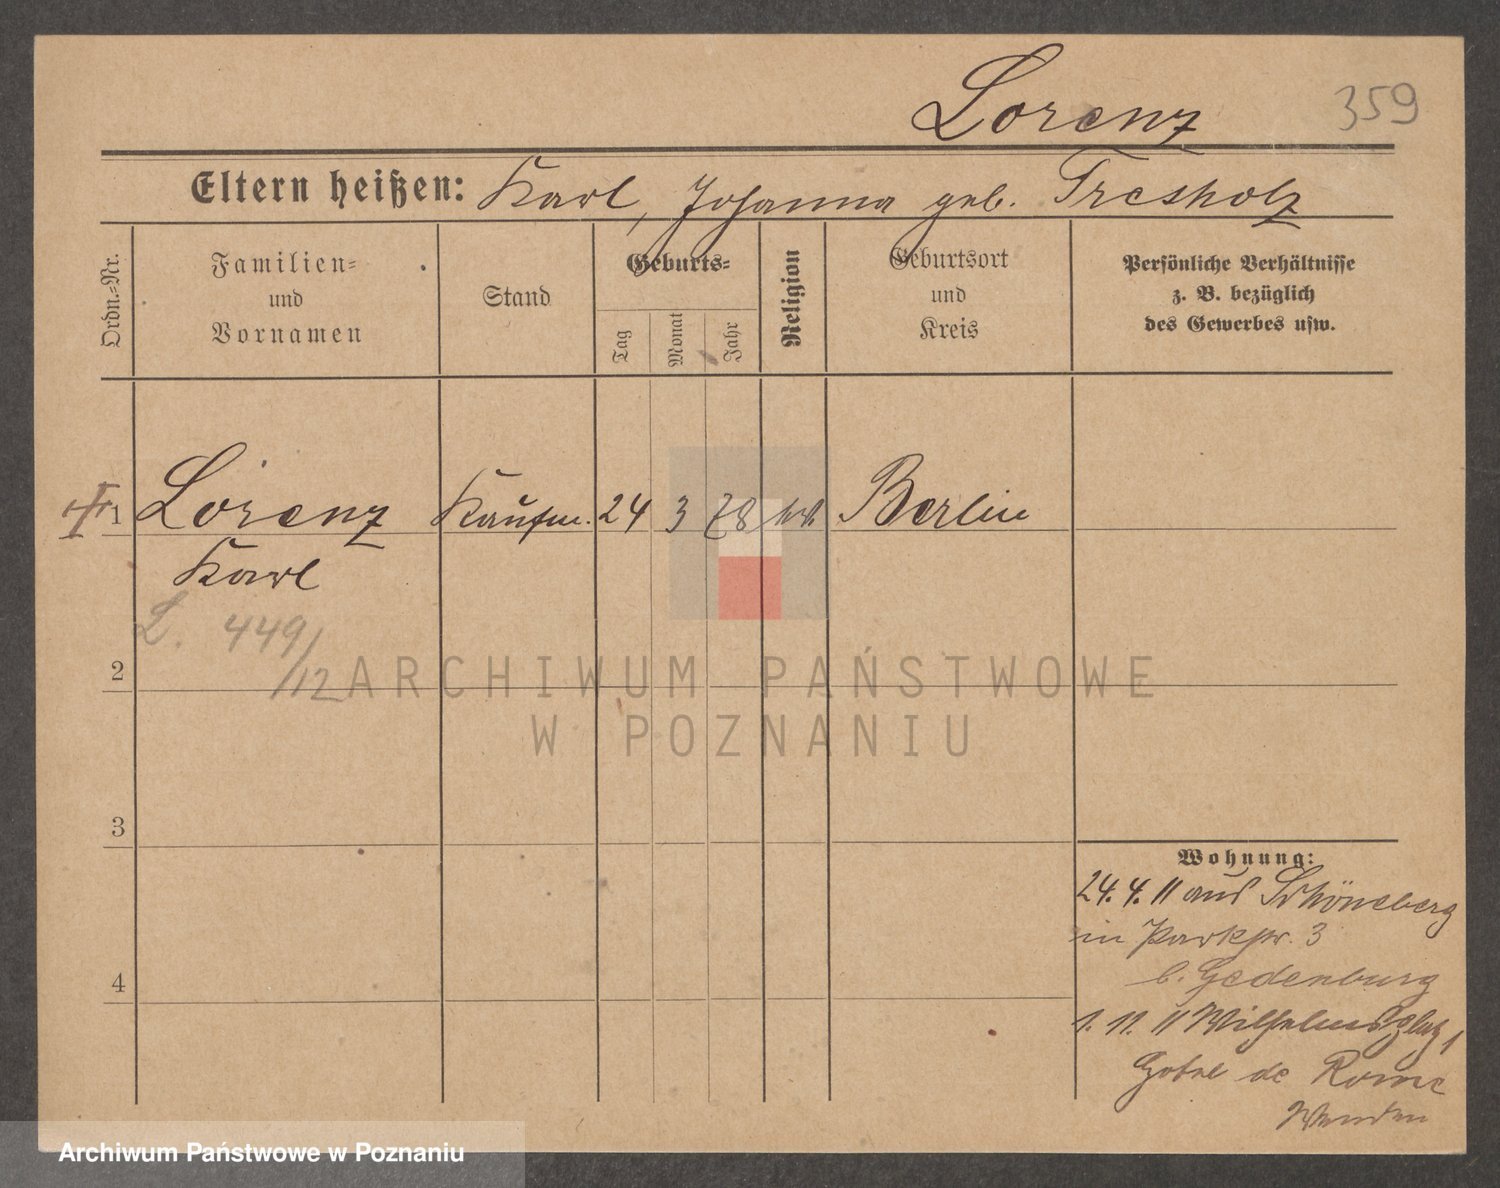 Lorenz 359
Eltern heißen: Karl, Johanna geb. Tresholz
Ordn.-Nr.
Familien-
und
Vornamen
Stand
Geburts-
Tag
Monat
Jahr
Religion
Geburtsort
und
Kreis
Persönliche Verhältnisse
z. B. bezüglich
des Gewerbes usw.
1 Lorenz Kaufm. 24 3 78 Berlin
Karl
L. 449/12
2
3
4
Wohnung:
24. 4. 11 aus Schöneberg
in Parkstr. 3
b. Gedenburg
1. 11. 11 Wilhelmsplatz 1
Hotel de Rome
Wenden
ARCHIWUM PAŃSTWOWE
W POZNANIU
Archiwum Państwowe w Poznaniu